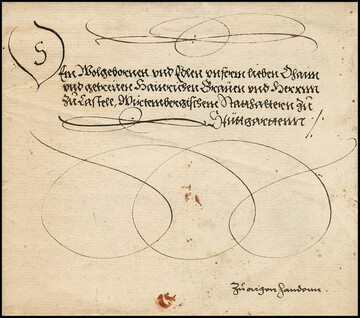 Dem Wolgebornen vnd Edlen vnserm lieben Ohaim
vnd getrewen Hainrichen Grauen vnd Herrnn
zu Castell, Würtembergischem Statthaltern zu
Stuttgarttenn /:
Zu aigen handenn.